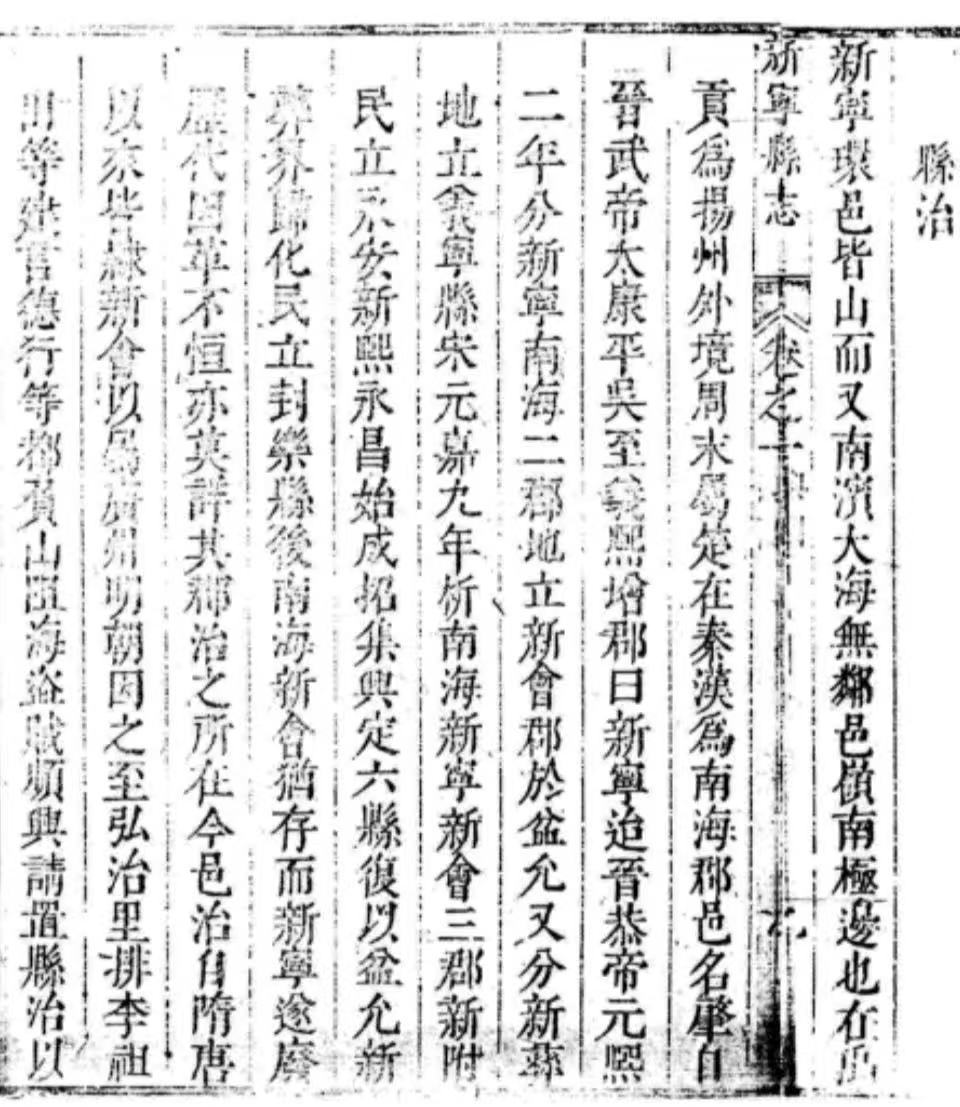 縣治
新寧環邑皆山而又南濱大海無鄰邑嶺南極邊也在禹
新寧縣志
卷之一
貢為揚州外境周末屬楚在秦漢為南海郡邑名肇自
晉武帝太康平吳至義熙增郡曰新寧迨晉恭帝元熙
二年分新寧南海二郡地立新會郡於盆允又分新
地立義寧縣宋元嘉九年析南海新寧新會三郡新附
民立永安新熙永昌始成招集興定六縣復以盆允新
界歸化民立封樂縣後南海新會猶存而新寧遂廢
歷代因革不恒亦莫詳其郡治之所在今邑治自隋唐
以來皆隸新會以屬廣州明朝因之至弘治里排李祖
等建言德行等都負山阻海盜賊頻興請置縣治以